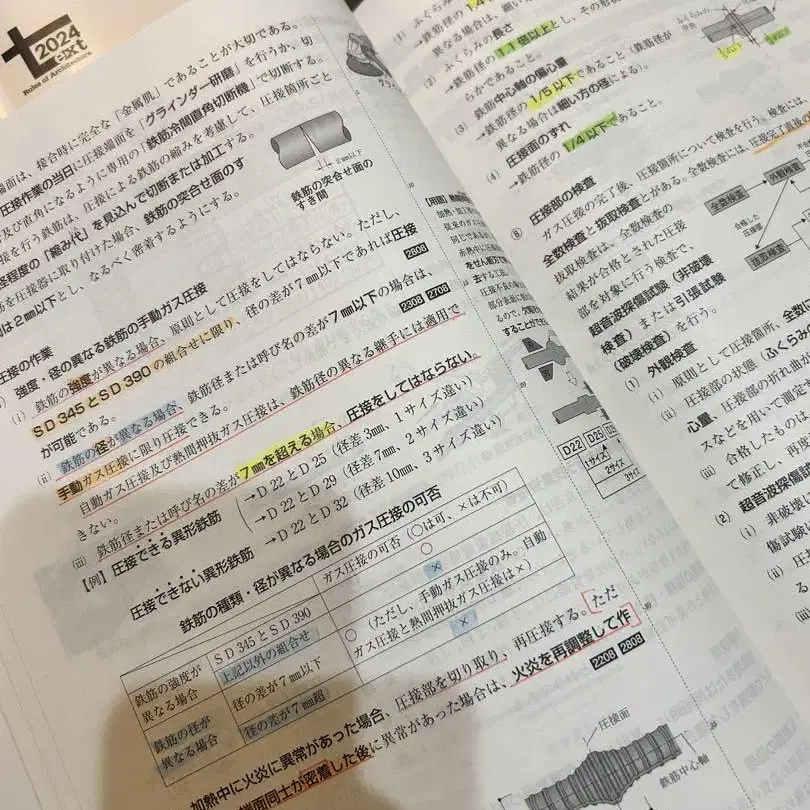 2024
text
Rules of Architecture
端面は、接合時に完全な「金属肌」であることが大切である。
圧接作業の当日に圧接端面を「グラインダー研磨」を行うか、切
及び直角になるように専用の「鉄筋冷間直角切断機」で切断する。
接を行う鉄筋は、圧接による鉄筋の縮みを考慮して、圧接箇所ごと
径程度の「縮み代」を見込んで切断または加工する。
を圧接器に取り付けた場合、鉄筋の突合せ面のす
は2mm以下とし、なるべく密着するようにする。
2mm以下
鉄筋の突合せ面の
すき間
圧接の作業
強度・径の異なる鉄筋の手動ガス圧接
(i) 鉄筋の強度が異なる場合、原則として圧接をしてはならない。ただし、
SD345とSD390の組合せに限り、径の差が7mm以下であれば圧接
が可能である。
2808
(ii) 鉄筋の径が異なる場合、鉄筋径または呼び名の差が7mm以下の場合は、
手動ガス圧接に限り圧接できる。
2308 2708
自動ガス圧接及び熱間押抜ガス圧接は、鉄筋径の異なる継手には適用で
きない。
(iii) 鉄筋径または呼び名の差が7mmを超える場合、圧接をしてはならない。
【例】圧接できる異形鉄筋
→D22とD25（径差3mm、1サイズ違い）
→D22とD29（径差7mm、2サイズ違い）
圧接できない異形鉄筋
→D22とD32（径差10mm、3サイズ違い）
鉄筋の種類・径が異なる場合のガス圧接の可否
ガス圧接の可否（○は可、×は不可）
鉄筋の強度が
異なる場合
SD345とSD390
○
上記以外の組合せ
×
鉄筋の径が
異なる場合
径の差が7mm以下
○（ただし、手動ガス圧接のみ。自動
ガス圧接と熱間押抜ガス圧接は×）
径の差が7mm超
×
加熱中に火炎に異常があった場合、圧接部を切り取り、再圧接する。ただ
端面同士が密着した後に異常があった場合は、火炎を再調整して作
2208 2808
圧接面
鉄筋中心軸
D22 D25
1サイズ
2サイズ
3サイズ
ふくらみの長さ
→鉄筋径の1.1倍以上とし、その形状
らかであること。
(3) 鉄筋中心軸の偏心量
→鉄筋径の1/5以下であること（鉄筋径が
異なる場合は細い方の径による）。
(4) 圧接面のずれ
→鉄筋径の1/4以下であること。
⑥ 圧接部の検査
ガス圧接の完了後、圧接箇所について検査を行う。検査には
全数検査と抜取検査とがある。全数検査は、圧接完了直後の
抜取検査は、全数検査の
結果が合格とされた圧接
部を対象に行う検査で、
超音波探傷試験（非破壊
検査）または引張試験
（破壊検査）を行う。
全数検査
外観検査
合格した
圧接部
抜取検査
(1) 外観検査
(i) 原則として圧接箇所、全数
(ii) 圧接部の状態（ふくらみ
心量、圧接部の折れ曲
スなどを用いて測定
(iii) 合格したものは
て修正し、再
(2) 超音波探傷
(i) 非破壊
傷試験
(ii)